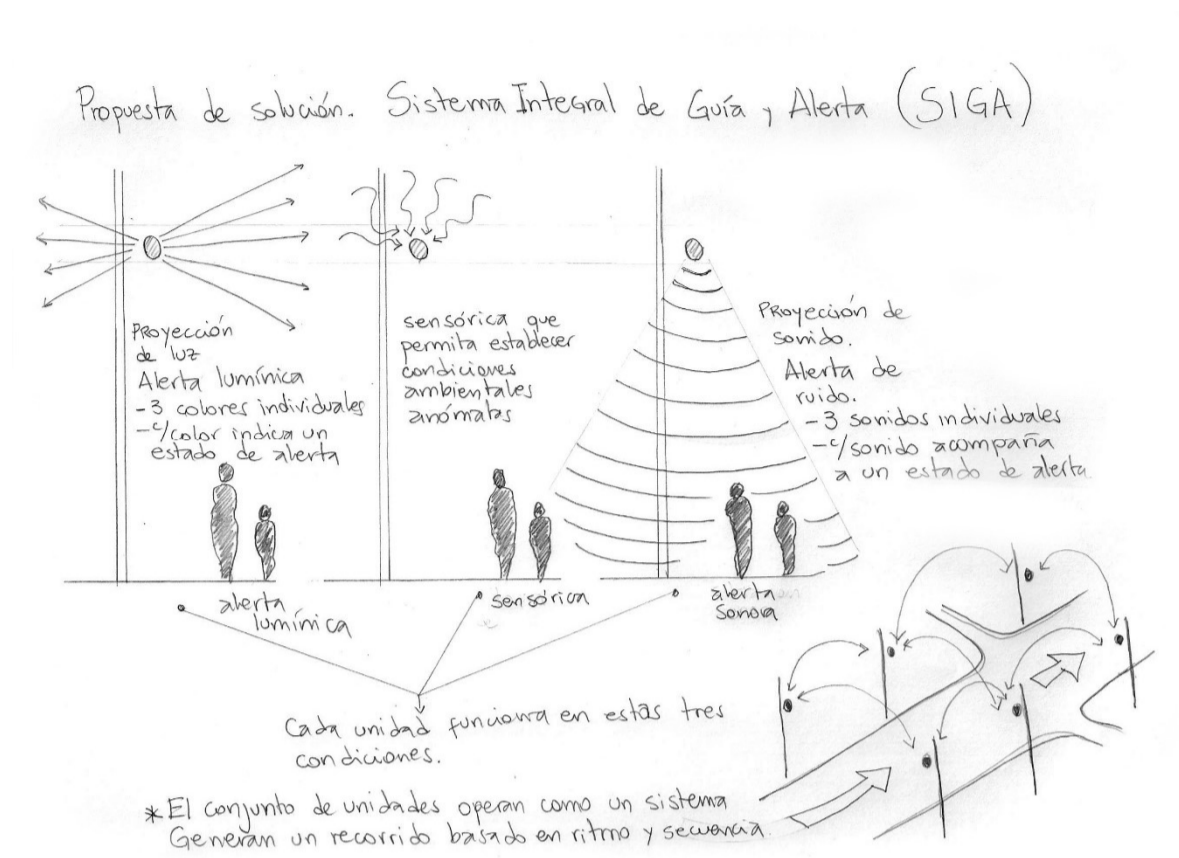 Propuesta de solución. Sistema Integral de Guía y Alerta (SIGA)
Proyección
de luz
Alerta lumínica
-3 colores individuales
-c/color indica un
estado de alerta
sensórica que
permita establecer
condiciones
ambientales
anómalas
Proyección de
sonido.
Alerta de
ruido.
-3 sonidos individuales
-c/sonido acompaña
a un estado de alerta
alerta
lumínica
sensórica
alerta
sonora
Cada unidad funciona en estas tres
condiciones.
*El conjunto de unidades operan como un sistema
Generan un recorrido basado en ritmo y secuencia.